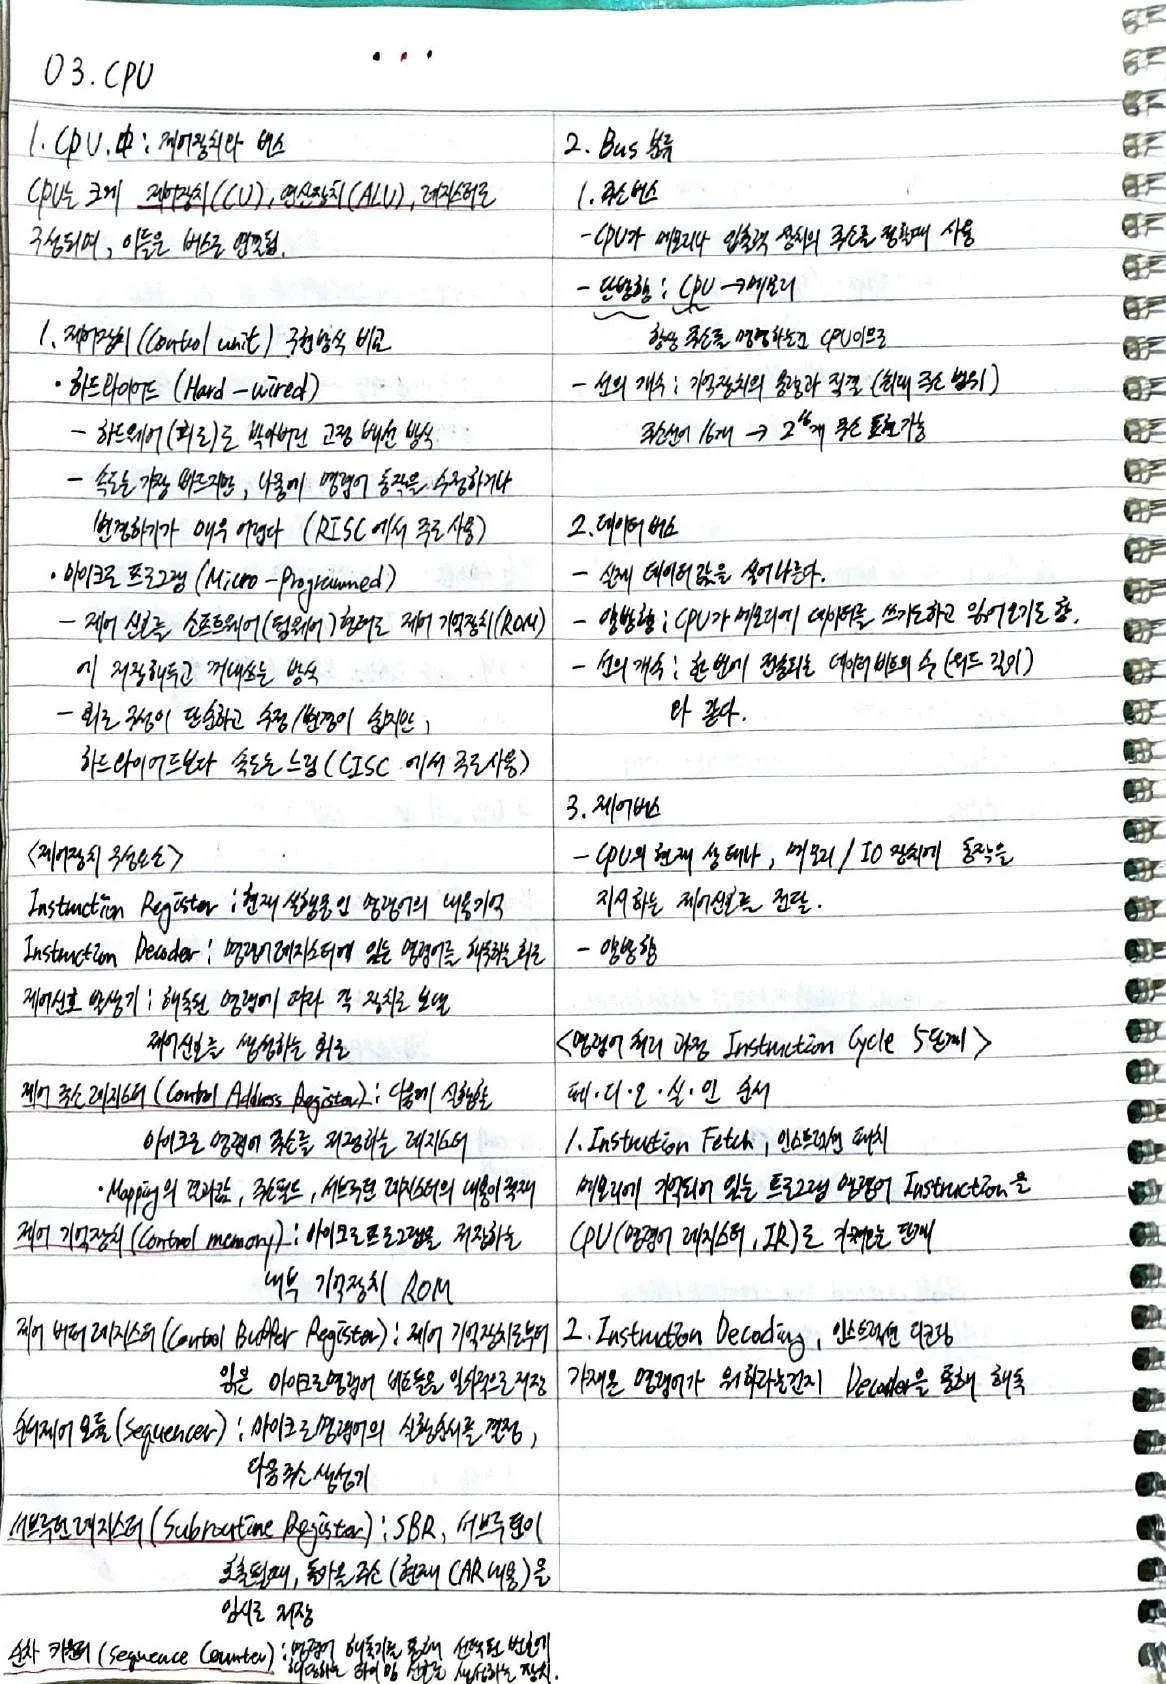 03. CPU
1. CPU.中: 제어장치와 버스
CPU는 크게 제어장치(CU), 연산장치(ALU), 레지스터로
구성되며, 이들은 버스로 연결됨.
1. 제어장치(Control unit) 구현방식 비교
• 하드와이어드 (Hard-wired)
- 하드웨어(회로)로 박아버린 고정 배선 방식
- 속도는 가장 빠르지만, 나중에 명령어 동작을 수정하거나
변경하기가 매우 어렵다 (RISC에서 주로 사용)
• 마이크로 프로그램 (Micro-Programmed)
- 제어 신호를 소프트웨어(펌웨어)형태로 제어 기억장치(ROM)
에 저장해두고 꺼내쓰는 방식
- 회로 구성이 단순하고 수정/변경이 쉽지만,
하드와이어드보다 속도는 느림 (CISC 에서 주로사용)
<제어장치 구성요소>
Instruction Register : 현재 실행중인 명령어의 내용기억
Instruction Decoder : 명령어레지스터에 있는 명령어를 해독하는 회로
제어신호 발생기 : 해독된 명령에 따라 각 장치로 보낼
제어신호를 생성하는 회로
제어 주소 레지스터 (Control Address Register) : 다음에 실행할
마이크로 명령어 주소를 저장하는 레지스터
• Mapping의 결과값, 주소필드, 서브루틴 레지스터의 내용이 적재
제어 기억장치 (Control memory) : 마이크로프로그램을 저장하는
내부 기억장치 ROM
제어 버퍼 레지스터 (Control Buffer Register) : 제어 기억장치로부터
읽은 마이크로명령어 비트들을 일시적으로 저장
순서제어 모듈 (Sequencer) : 마이크로명령어의 실행순서를 결정,
다음주소 생성기
서브루틴 레지스터 (Subroutine Register) : SBR, 서브루틴이
호출될때, 돌아올 주소 (현재 CAR내용)을
임시로 저장
순차 카운터 (Sequence Counter) : 명령어 해독기를 통해 선택된 번호에
해당하는 타이밍 신호를 생성하는 장치.
2. Bus 분류
1. 주소버스
- CPU가 메모리나 입출력 장치의 주소를 정할때 사용
- 단방향 : CPU → 메모리
항상 주소를 명령하는건 CPU이므로
- 선의 개수 : 기억장치의 용량과 직결 (최대 주소 범위)
주소선이 16개 → 2¹⁶개 주소 표현가능
2. 데이터버스
- 실제 데이터값을 실어나른다.
- 양방향 : CPU가 메모리에 데이터를 쓰기도하고 읽어오기도 함.
- 선의 개수 : 한 번에 전송되는 데이터 비트의 수 (워드 길이)
와 같다.
3. 제어버스
- CPU의 현재 상태나, 메모리/IO 장치에 동작을
지시하는 제어신호를 전달.
- 양방향
<명령어 처리 과정 Instruction Cycle 5단계>
페·디·오·실·인 순서
1. Instruction Fetch, 인스트럭션 패치
메모리에 기억되어 있는 프로그램 명령어 Instruction을
CPU(명령어 레지스터, IR)로 가져오는 단계
2. Instruction Decoding, 인스트럭션 디코딩
가져온 명령어가 뭐하라는건지 Decoder을 통해 해독